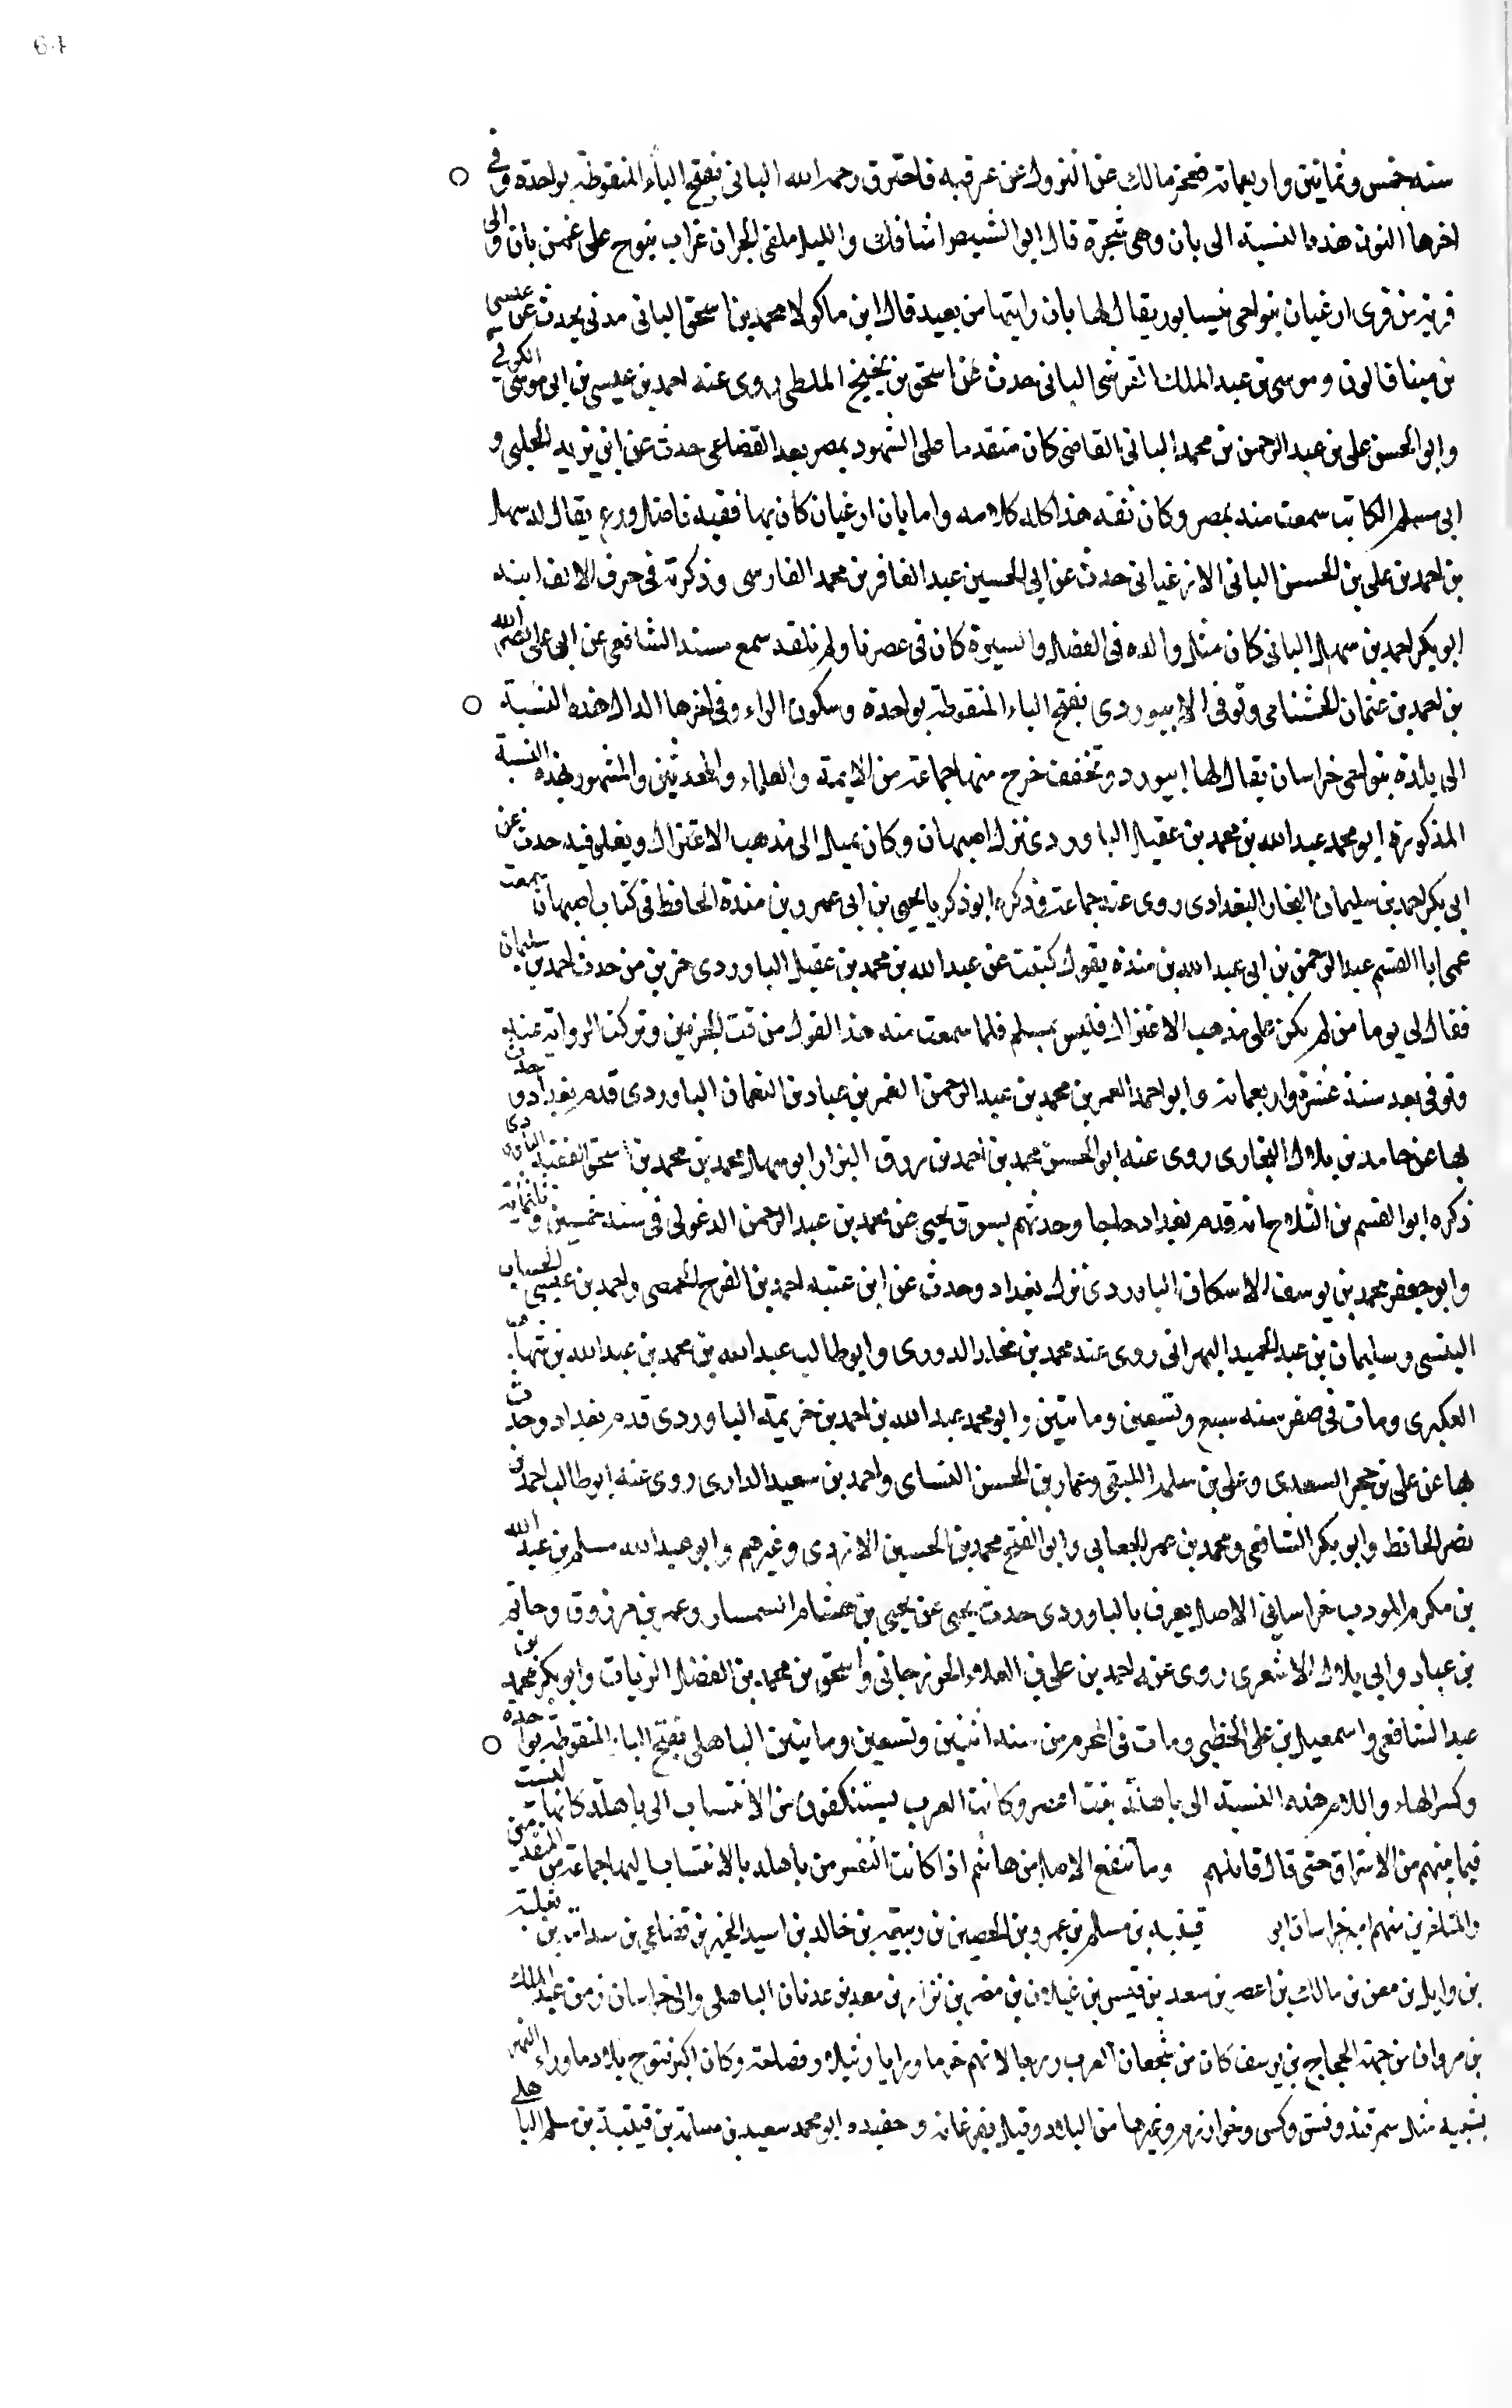 64
سنة خمس وثمانين واربعمائة ضجر مالك عن النزول عن غرفته فاحترق رحمه الله الباني بفتح الباء المنقوطة بواحدة وفي
اخرها النون هذه النسبة الى بان وهي شجرة قال ابو الشيص اشاقك والليل ملقى الجران غراب ينوح على غصن بان والى
قرية من قرى ارغيان بنواحي نيسابور يقال لها بان رايتها من بعيد قال ابن ماكولا محمد بن اسحق الباني مدني يحدث عن عيسى
بن مينا قالون وموسى بن عبد الملك القرشي الباني حدث عن اسحق بن نجيح الملطي روى عنه احمد بن عيسى بن ابي موسى الكوفي
وابو الحسن علي بن عبد الرحمن بن محمد الباني القاضي كان متقدما على الشهود بمصر بعد القضاعي حدث عن ابن يزيد الحلبي و
ابي مسلم الكاتب سمعت منه بمصر وكان ثقة هذا كله كلامه واما بان ارغيان كان بها فقيه فاضل ورع يقال له سهل
بن احمد بن علي بن الحسن الباني الارغياني حدث عن ابي الحسين عبد الغافر بن محمد الفارسي وذكرته في حرف الالف ابنه
ابو بكر احمد بن سهل الباني كان مثل والده في الفضل والسيرة كان في عصرنا ولم نلقه سمع مسند الشافعي عن ابي علي نصر الله
بن احمد بن عثمان الخشنامي وتوفي الابيوردي بفتح الباء المنقوطة بواحدة وسكون الراء وفي اخرها الدال هذه النسبة
الى بلدة بنواحي خراسان يقال لها ابيورد وتخفف خرج منها جماعة من الايمة والعلماء والمحدثين والمشهور بهذه النسبة
المذكورة ابو محمد عبد الله بن محمد بن عقيل الباوردي نزل اصبهان وكان يميل الى مذهب الاعتزال ويغلو فيه حدث عن
ابي بكر احمد بن سليمان النجاد البغدادي روى عنه جماعة وذكره ابو زكريا يحيى بن ابي عمرو بن مندة الحافظ في كتاب اصبهان سمعت
عمي ابا القسم عبد الرحمن بن ابي عبد الله بن مندة يقول كتبت عن عبد الله بن محمد بن عقيل الباوردي جزئين من حدث احمد بن سليمان
فقال لي يوما من لم يكن على مذهب الاعتزال فليس بمسلم فلما سمعت منه هذا القول مزقت الجزئين وتركت الرواية عنه
وتوفي بعد سنة عشرة واربعمائة وابو احمد العمر بن محمد بن عبد الرحمن الغمر بن عباد بن النعمان الباوردي قدم بغداد وحدث
بها عن حامد بن بلال البخاري روى عنه ابو الحسن محمد بن احمد بن رزق البزار ابو سهل محمد بن محمد بن اسحق الفقيه الباوردي
ذكره ابو القسم بن الثلاج انه قدم بغداد حاجا وحدثهم بسوق يحيى عن محمد بن عبد الرحمن الدغولي في سنة خمسين وثلثمائة
وابو جعفر محمد بن يوسف الاسكاف الباوردي نزل بغداد وحدث عن ابن عتبة احمد بن الفرج الحمصي واحمد بن عيسى الخشاب
التنسي وسليمان بن عبد الحميد البهراني روى عنه محمد بن مخلد الدوري وابو طالب عبد الله بن محمد بن عبد الله بن شهاب
العكبري ومات في صفر سنة سبع وتسعين ومائتين وابو محمد عبد الله بن احمد بن خزيمة الباوردي قدم بغداد وحدث
بها عن علي بن حجر السعدي وعلي بن سلمة اللبقي وعمار بن الحسن النساي واحمد بن سعيد الداري روى عنه ابو طالب احمد بن
نصر الحافظ وابو بكر الشافعي ومحمد بن عمر الجعابي وابو الفتح محمد بن الحسين الازدي وغيرهم وابو عبد الله مسلم بن عبد الله
بن مكرم المودب خراساني الاصل يعرف بالباوردي حدث يحيى عن يحيى بن هشام السمسار وعمر بن مرزوق وحاتم
بن عباد وابي بلال الاشعري روى عنه احمد بن علي بن العلاء الجوزجاني واسحق بن محمد بن الفضل الزيات وابو بكر محمد بن
عبد الشافعي واسمعيل بن علي الخطبي ومات في المحرم من سنة اثنين وتسعين ومائتين الباهلي بفتح الباء المنقوطة بواحدة
وكسر الهاء واللام هذه النسبة الى باهلة بنت اعصر وكانت العرب يستنكفون من الانتساب الى باهلة كانها ليست
فيما بينهم من الاشراق حتى قال قائلهم وما تنفع الاصل من هاشم اذا كانت النفس من باهلة بالانتساب اليها جماعة من المتقدمين
والمتاخرين منهم امير خراسان ابو قتيبة بن مسلم بن عمرو بن الحصين بن ربيعة بن خالد بن اسيد الخير بن قضاعي بن سلامة بن ثعلبة
بن وايل بن معن بن مالك بن اعصر بن سعد بن قيس بن غيلان بن مضر بن نزار بن معد بن عدنان الباهلي والى خراسان زمن عبد الملك
بن مروان من جهة الحجاج بن يوسف كان من شجعان العرب ورجالاتهم حزما ورايا ونبلا وفضلة وكان اكثر فتوح بلاد ما وراء النهر
بسببه مثل سمرقند ونسف وكس وخوارزم وغيرها من البلاد وقتل بفرغانة وحفيده ابو محمد سعيد بن مسلم بن قتيبة بن مسلم الباهلي